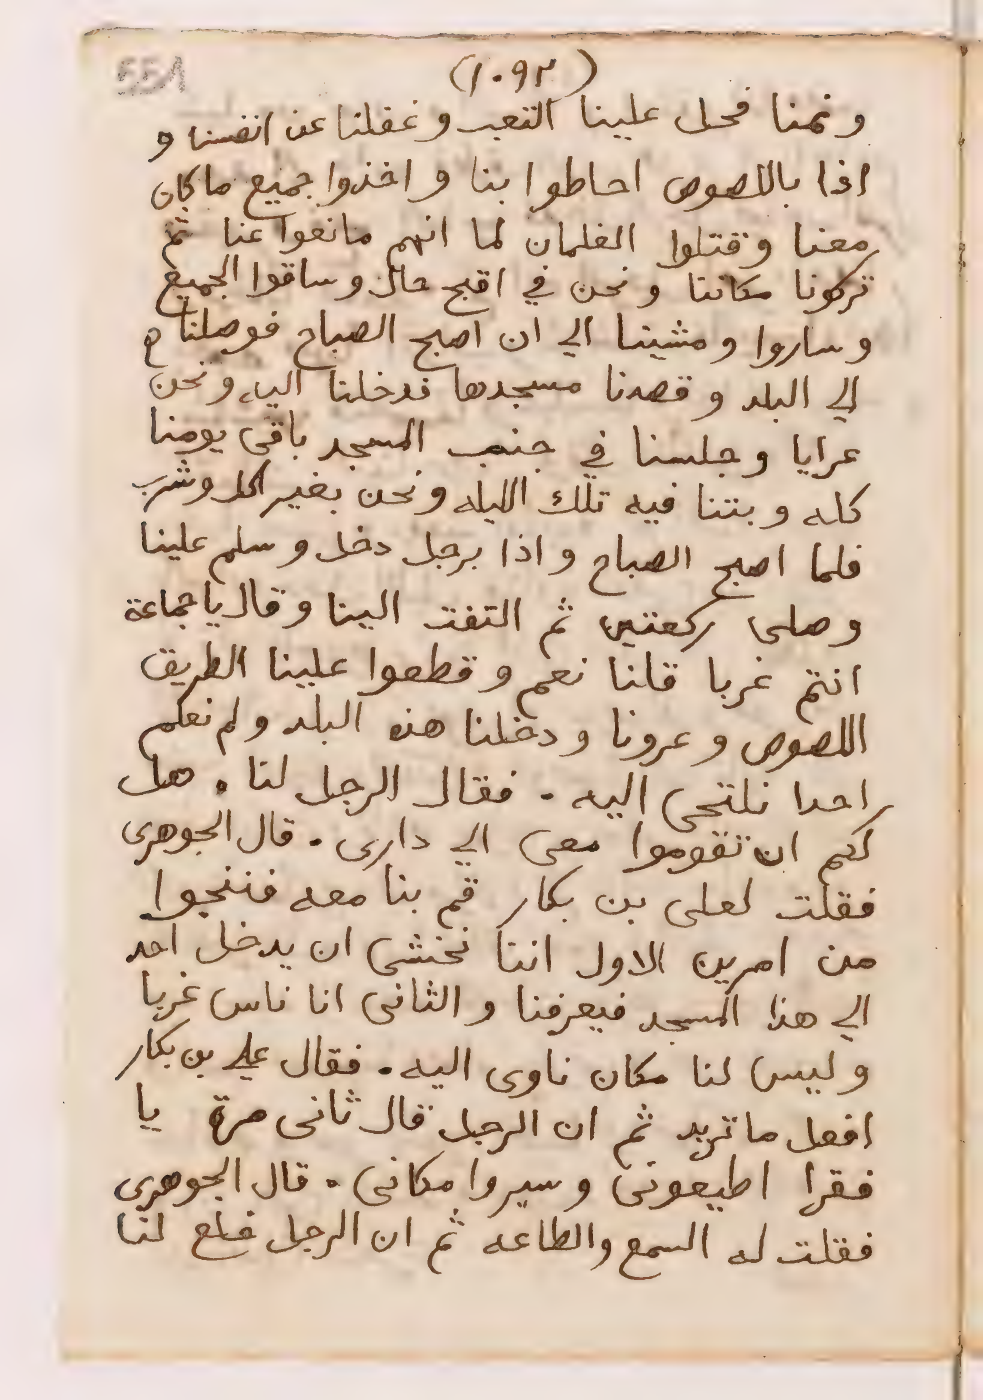 551
(١٠٩٢)
ونمنا فحل علينا التعب وغفلنا عن انفسنا و
اذا باللصوص احاطوا بنا و اخذوا جميع ما كان
معنا وقتلوا الغلمان لما انهم مانعوا عنا ثم
تركونا مكاننا ونحن في اقبح حال وساقوا الجميع
وساروا ومشينا الي ان اصبح الصباح فوصلنا
الي البلد وقصدنا مسجدها فدخلنا اليه ونحن
عرايا وجلسنا في جنب المسجد باقى يومنا
كله وبتنا فيه تلك الليله ونحن بغير اكل وشرب
فلما اصبح الصباح واذا برجل دخل وسلم علينا
وصلى ركعتين ثم التفت الينا وقال يا جماعة
انتم غربا قلنا نعم وقطعوا علينا الطريق
اللصوص وعرونا ودخلنا هذه البلد ولم نعلم
احدا نلتجى اليه . فقال الرجل لنا . هل
لكم ان تقوموا معى الي دارى . قال الجوهرى
فقلت لعلى بن بكار قم بنا معه فننجوا
من امرين الاول اننا نخشى ان يدخل احد
الي هذا المسجد فيعرفنا والثانى انا ناس غربا
وليس لنا مكان ناوى اليه . فقال علي بن بكار
افعل ما تريد ثم ان الرجل قال ثانى مرة يا
فقرا اطيعونى وسيروا مكانى . قال الجوهرى
فقلت له السمع والطاعه ثم ان الرجل خلع لنا